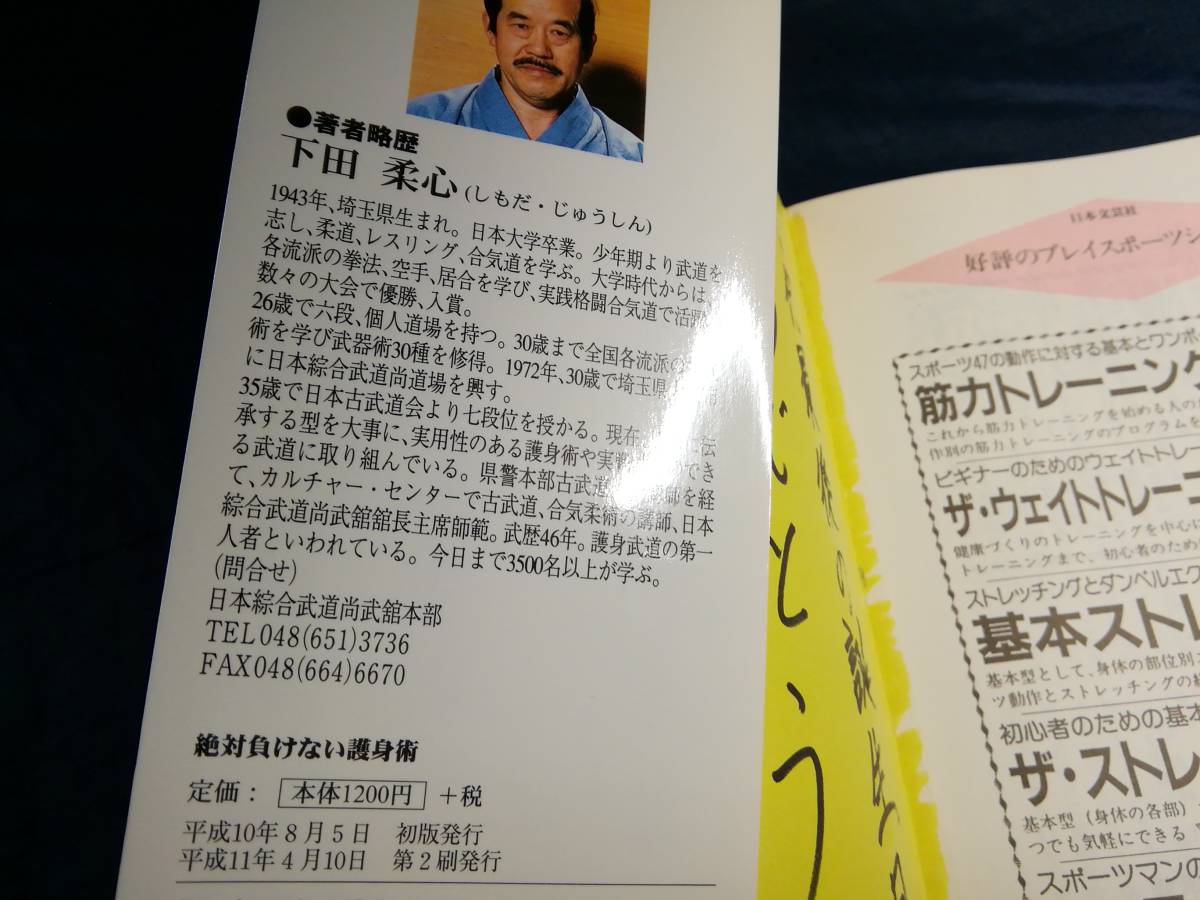 ●著者略歴
下田 柔心(しもだ・じゅうしん)
1943年、埼玉県生まれ。日本大学卒業。少年期より武道を
志し、柔道、レスリング、合気道を学ぶ。大学時代からは
各流派の拳法、空手、居合を学び、実践格闘合気道で活躍
数々の大会で優勝、入賞。
26歳で六段、個人道場を持つ。30歳まで全国各流派の
術を学び武器術30種を修得。1972年、30歳で埼玉県
に日本綜合武道尚道場を興す。
35歳で日本古武道会より七段位を授かる。現在
承する型を大事に、実用性のある護身術や実戦 でき
る武道に取り組んでいる。県警本部古武道 師を経
て、カルチャー・センターで古武道、合気柔術の講師、日本
綜合武道尚武舘舘長主席師範。武歴46年。護身武道の第一
人者といわれている。今日まで3500名以上が学ぶ。
(問合せ)
日本綜合武道尚武舘本部
TEL048(651)3736
FAX048(664)6670
絶対負けない護身術
定価： 本体1200円 +税
平成10年8月5日 初版発行
平成11年4月10日 第2刷発行
日本文芸社
好評のプレイスポーツシ
スポーツ47の動作に対する基本とワンポ
筋力トレーニング
これから筋力トレーニングを始める人の
作別の筋力トレーニングのプログラムを
ビギナーのためのウェイトトレー
ザ・ウェイトトレーニ
健康づくりのトレーニングを中心
トレーニングまで、初心者のため
ストレッチングとダンベルエク
基本ストレ
基本型として、身体の部位別
ツ動作とストレッチングの
初心者のための基本
ザ・ストレ
基本型（身体の各部）
つでも気軽にできる
スポーツマンの